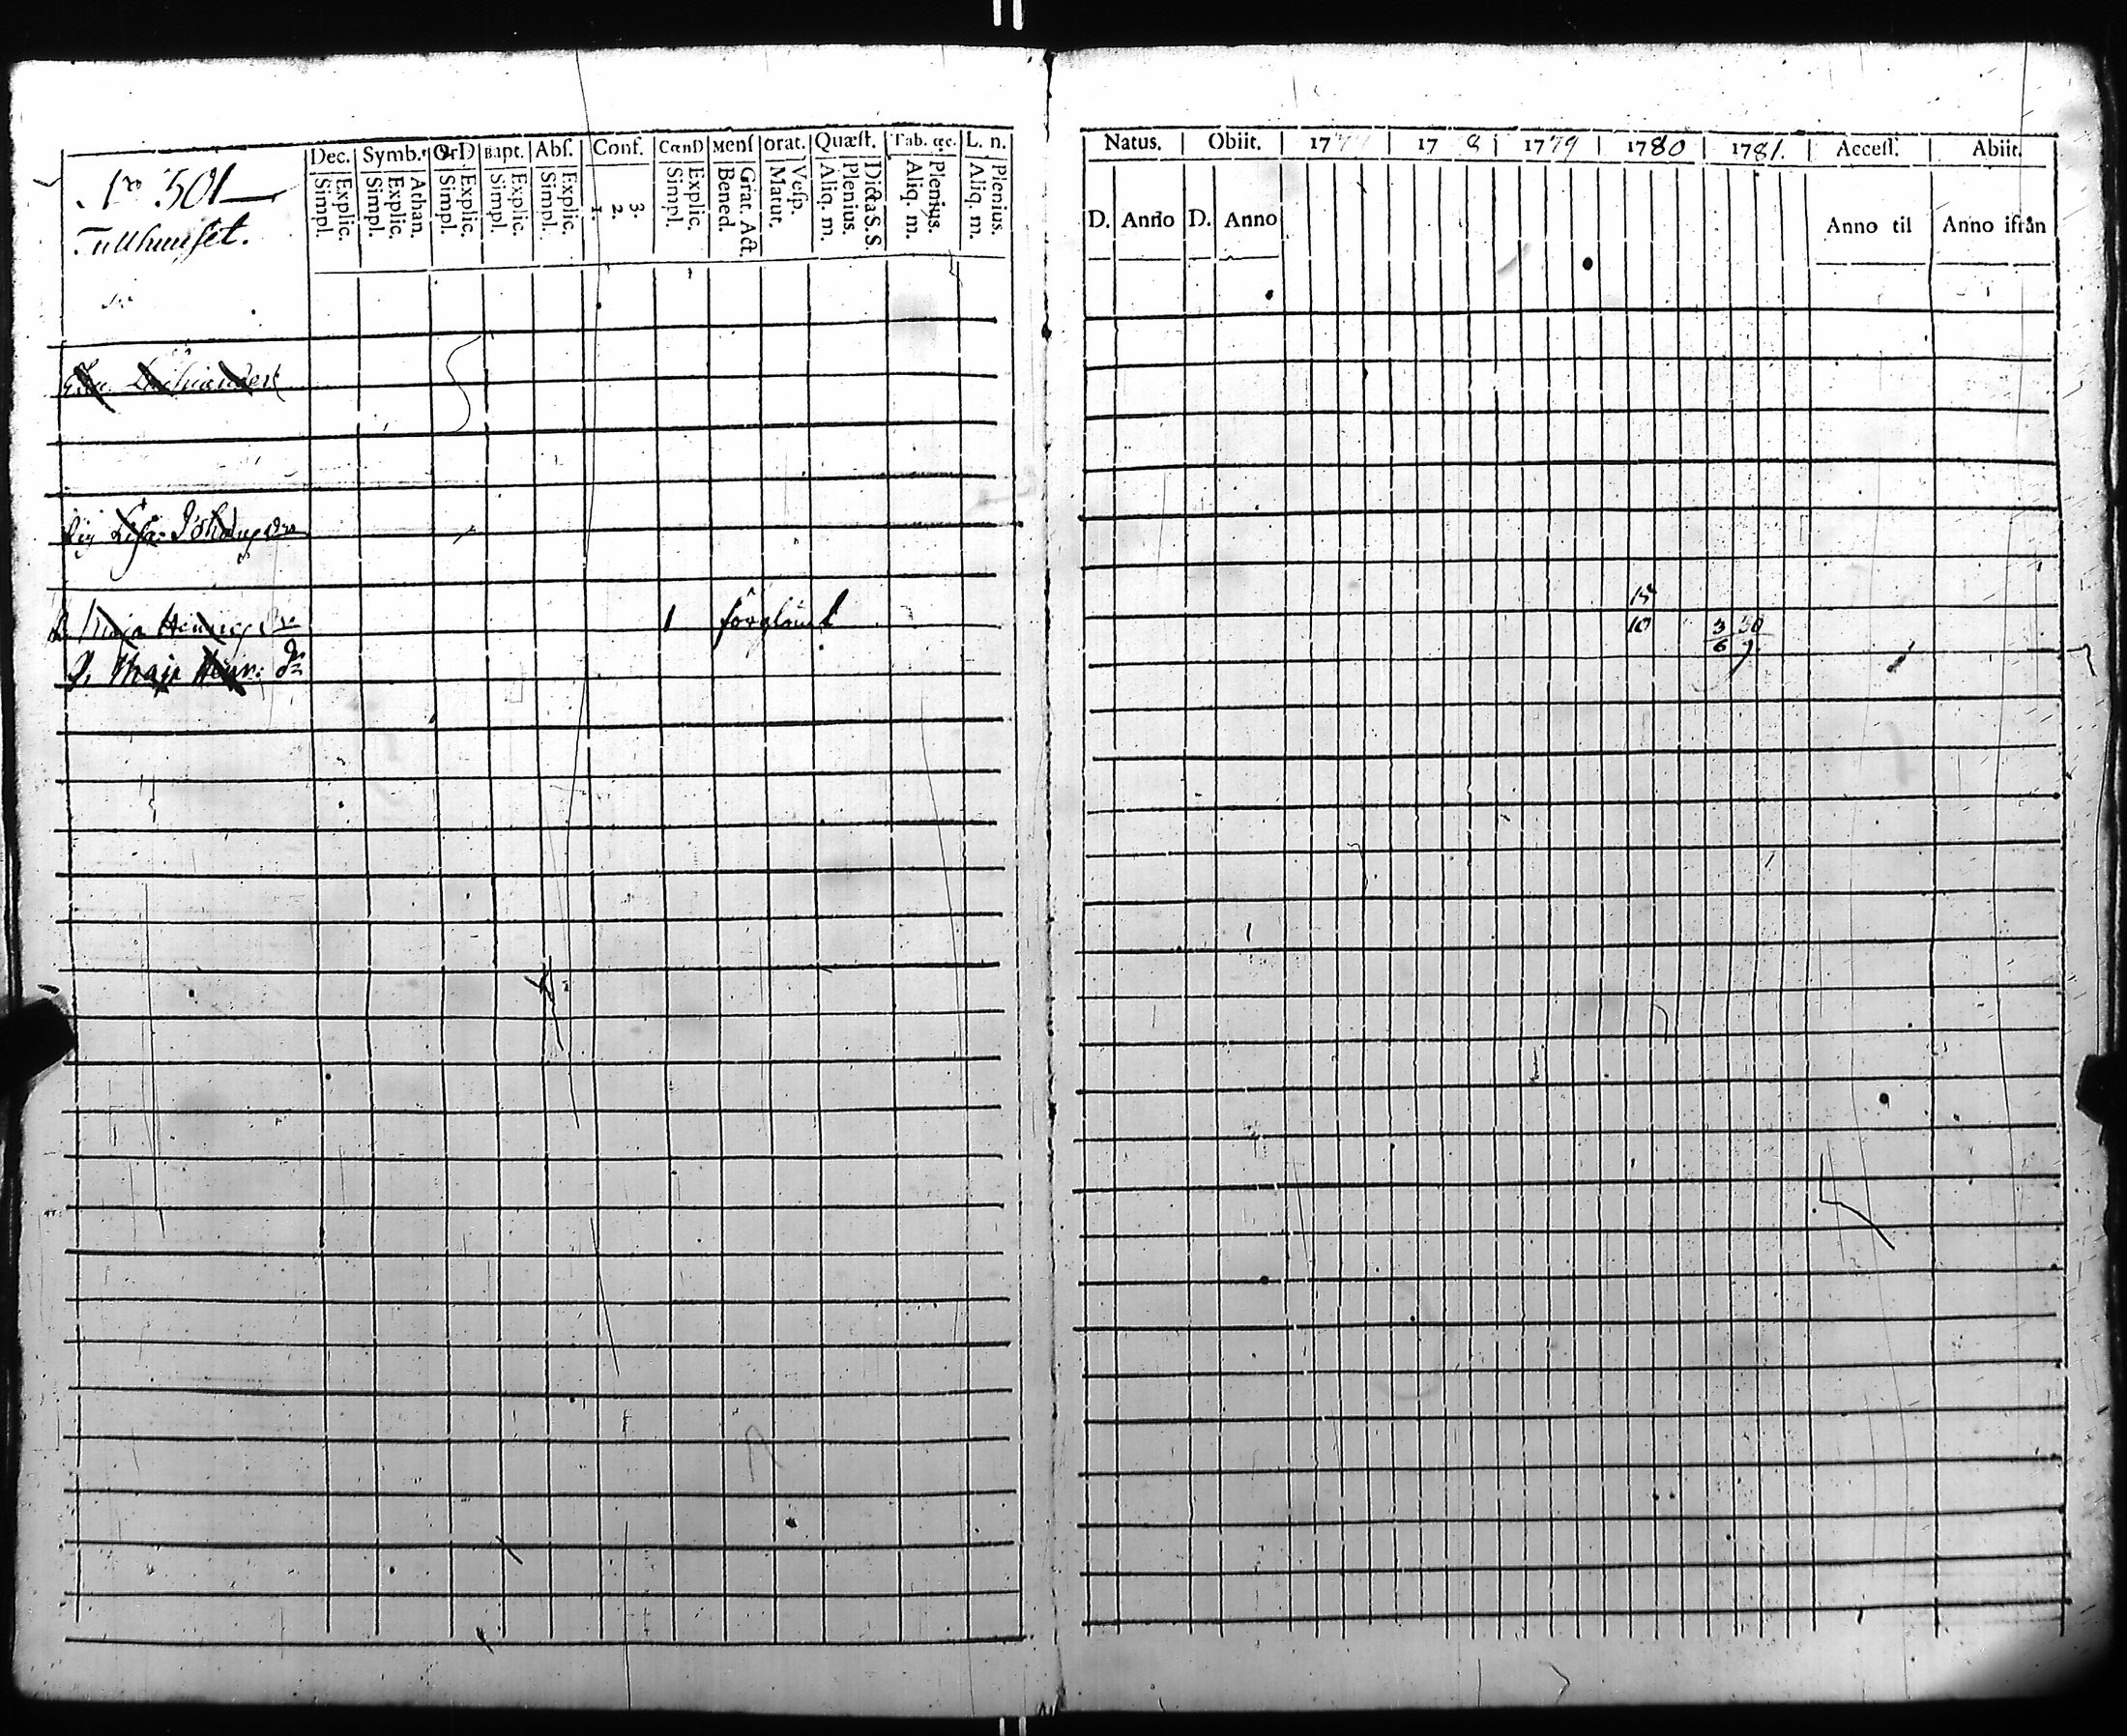 Dec. Symb. OrD Bapt. Abs. Conf. CœnD Menſ orat. Quæſt. Tab. œc. L. n.
Explic. Simpl. Athan. Explic. Simpl. Explic. Simpl. Explic. Simpl. Explic. Simpl. 1. 2. 3. Explic. Simpl. Grat. Act. Bened. Veſp. Matut. Dicta S.S. Plenius. Aliq. m. Plenius. Aliq. m. Plenius. Aliq. m.
No 501
Tullhuuset.
Lisa Johansdr
Maja Henricsdr 1 förgland
Maja Henr: dr
Natus. Obiit. 1777 17 8 1779 1780 1781. Acceſſ. Abiit.
D. Anno D. Anno Anno til Anno ifrån
15
10 3 30
6 9